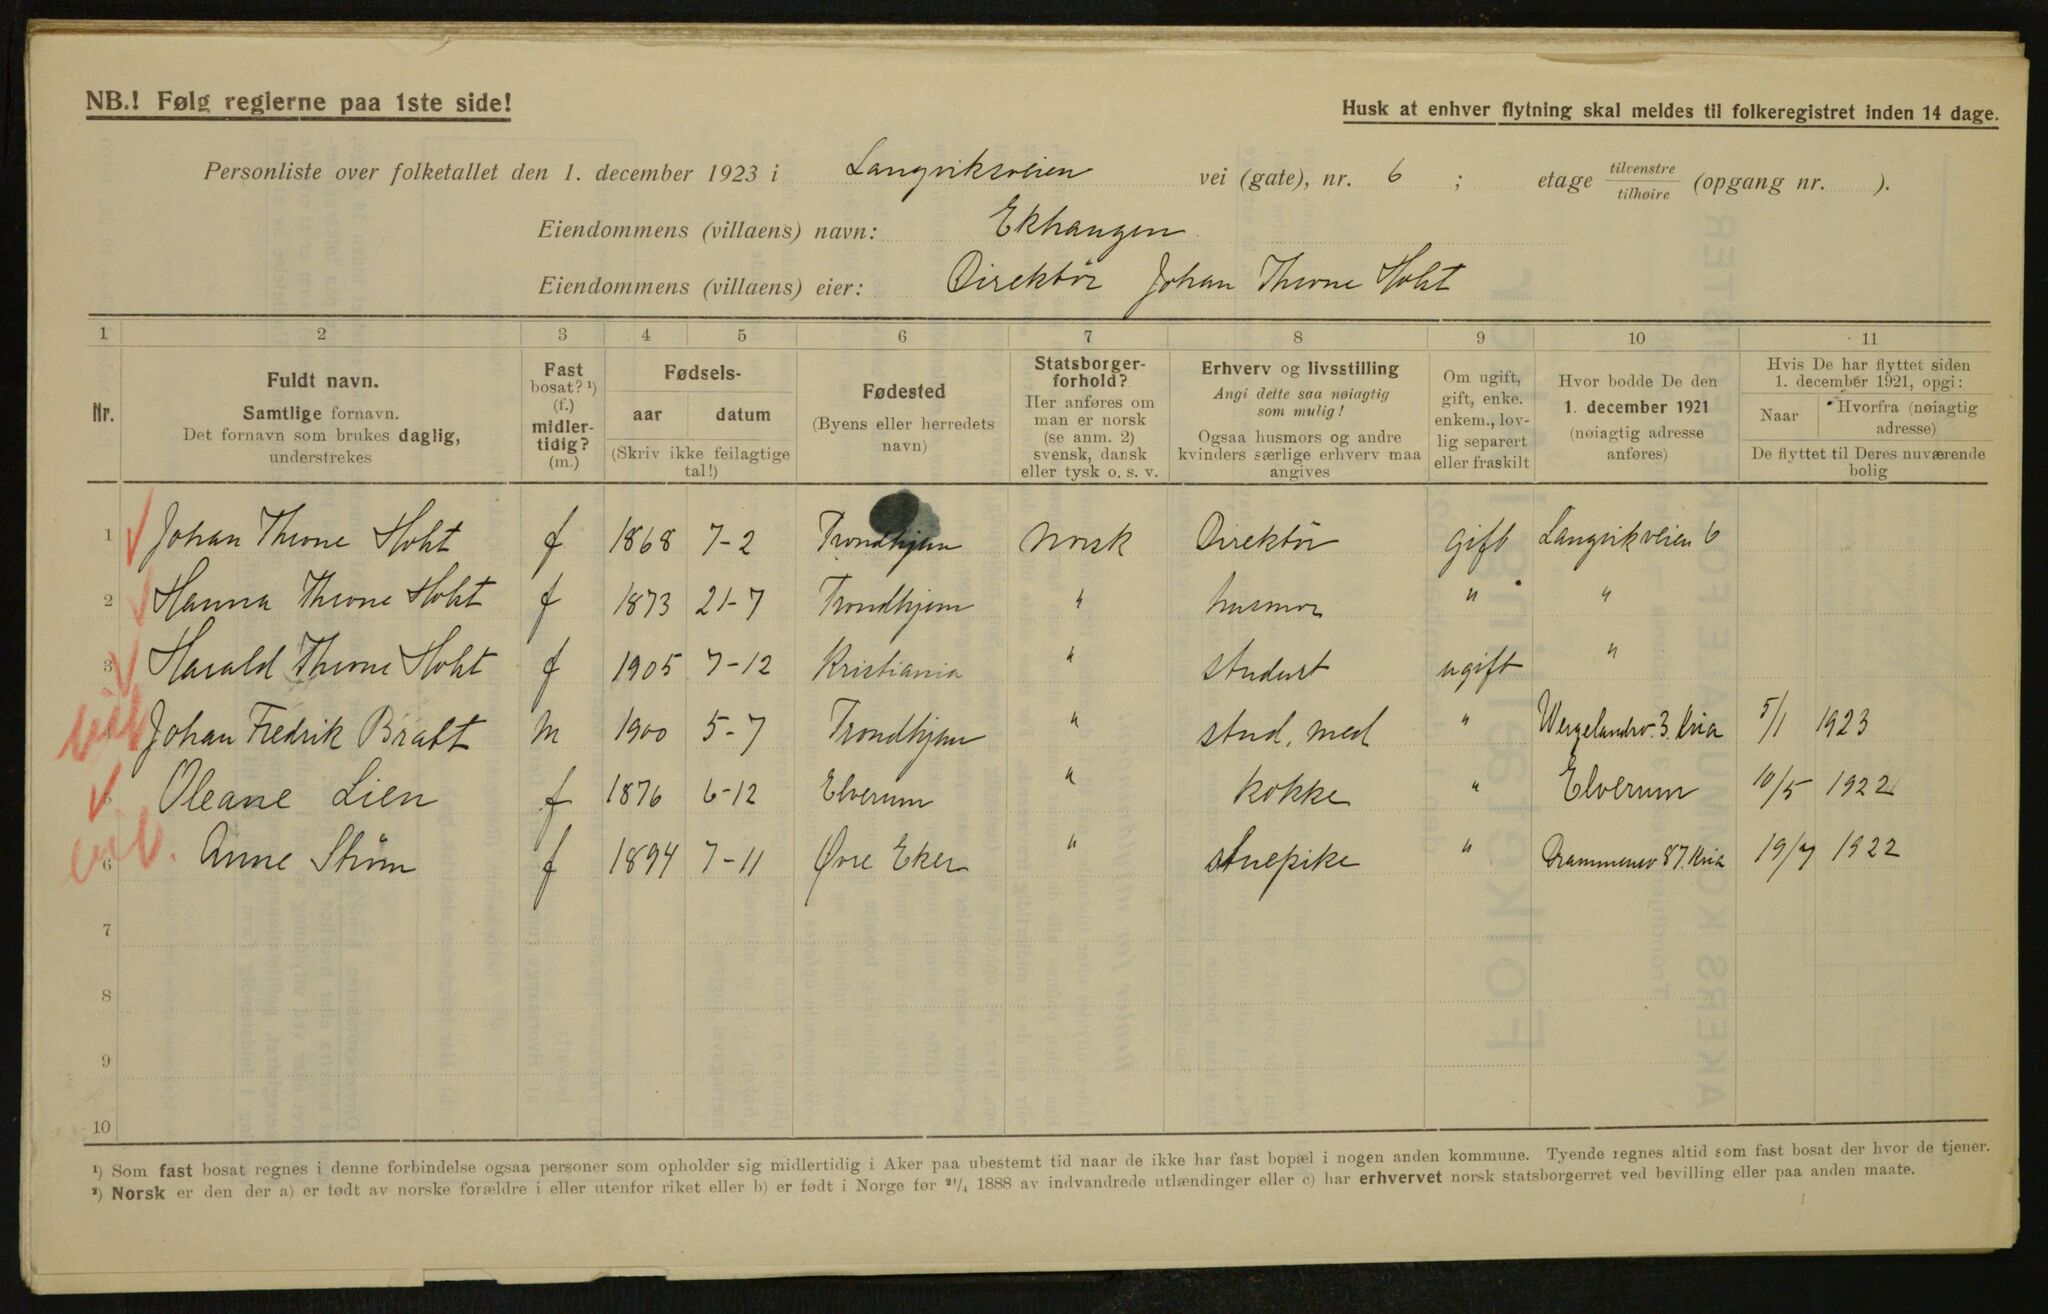 NB.! Følg reglerne paa 1ste side!
Husk at enhver flytning skal meldes til folkeregistret inden 14 dage.
Personliste over folketallet den 1. december 1923 i Langviksveien vei (gate), nr. 6 ; etage tilvenstre / tilhøire (opgang nr. ).
Eiendommens (villaens) navn: Ekhaugen
Eiendommens (villaens) eier: Direktør Johan Throne Holst
1 2 3 4 5 6 7 8 9 10 11
Nr.
Fuldt navn.
Samtlige fornavn.
Det fornavn som brukes daglig,
understrekes
Fast
bosat? ¹)
(f.)
midler-
tidig?
(m.)
Fødsels-
aar datum
(Skriv ikke feilagtige
tal!)
Fødested
(Byens eller herredets
navn)
Statsborger-
forhold?
Her anføres om
man er norsk
(se anm. 2)
svensk, dansk
eller tysk o. s. v.
Erhverv og livsstilling
Angi dette saa nøiagtig
som mulig!
Ogsaa husmors og andre
kvinders særlige erhverv maa
angives
Om ugift,
gift, enke.
enkem., lov-
lig separert
eller fraskilt
Hvor bodde De den
1. december 1921
(nøiagtig adresse
anføres)
Hvis De har flyttet siden
1. december 1921, opgi:
Naar
Hvorfra (nøiagtig
adresse)
De flyttet til Deres nuværende
bolig
1 Johan Throne Holst f 1868 7-2 Trondhjem Norsk Direktør gift Langvikveien 6
2 Hanna Throne Holst f 1873 21-7 Trondhjem " husmor " "
3 Harald Throne Holst f 1905 7-12 Kristiania " student ugift "
Johan Fredrik Bratt m 1900 5-7 Trondhjem " stud. med " Wergelandsv. 3. Kria 5/1 1923
5 Oleane Lien f 1876 6-12 Elverum " kokke " Elverum 10/5 1922
6 Anne Strøm f 1894 7-11 Øvre Eker " stuepike " Drammensv 87. Kria 19/7 1922
7
8
9
10
¹) Som fast bosat regnes i denne forbindelse ogsaa personer som opholder sig midlertidig i Aker paa ubestemt tid naar de ikke har fast bopæl i nogen anden kommune. Tyende regnes altid som fast bosat der hvor de tjener.
²) Norsk er den der a) er født av norske forældre i eller utenfor riket eller b) er født i Norge før ²¹/₄ 1888 av indvandrede utlændinger eller c) har erhvervet norsk statsborgerret ved bevilling eller paa anden maate.